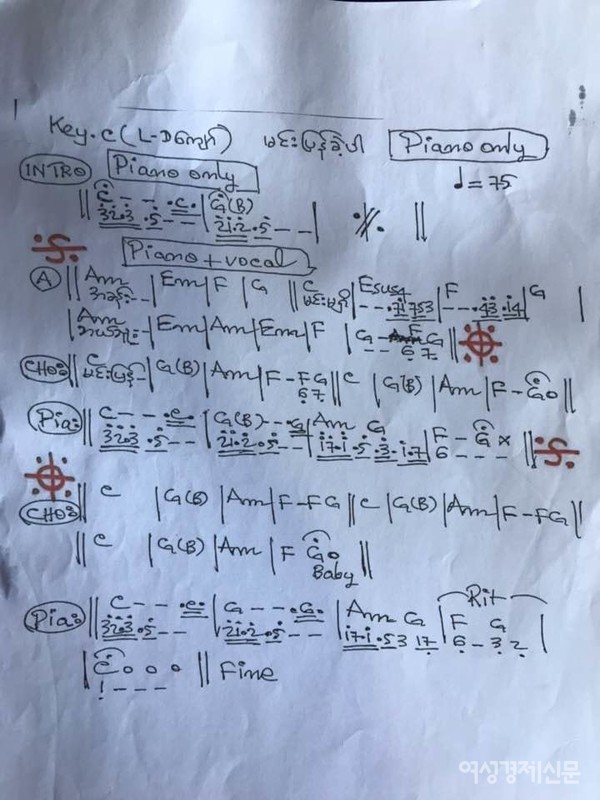 Key.C (L-Dကျော်) မင်းပြန်ခဲ့ပါ Piano only
INTRO Piano only ♩=75
|| C - - . c . | G(B) | ٪ ||
323 . 5 - - | 21.2 . 5 - - |
Piano + vocal
A || Am | Em | F | G || C | Esus4 | F | G |
- - . 71 753 | - - . 43 . 14 |
| Am | Em | Am | Em | F | G - - F G ||
6 7
CHO: || C | G(B) | Am | F - FG || C | G(B) | Am | F - Go ||
မင်းပြန် 6 7
Pia: || C - - - . c . | G(B) - - . G | Am G | F - G x ||
323 . 5 - - | 21.2 . 5 - - | 17.1 . 5 . 3 . 1.7 | 6 - - -
CHO: || C | G(B) | Am | F - FG || C | G(B) | Am | F - FG ||
|| C | G(B) | Am | F Go ||
Baby
Rit
Pia: || C - - . c . | G - - - . G . | Am G | F G |
323 . 5 - - | 21.2 . 5 - - | 17.1 . 53 17 | 6 - 3 2
| C o o o || Fine
1 - - -
여성경제신문